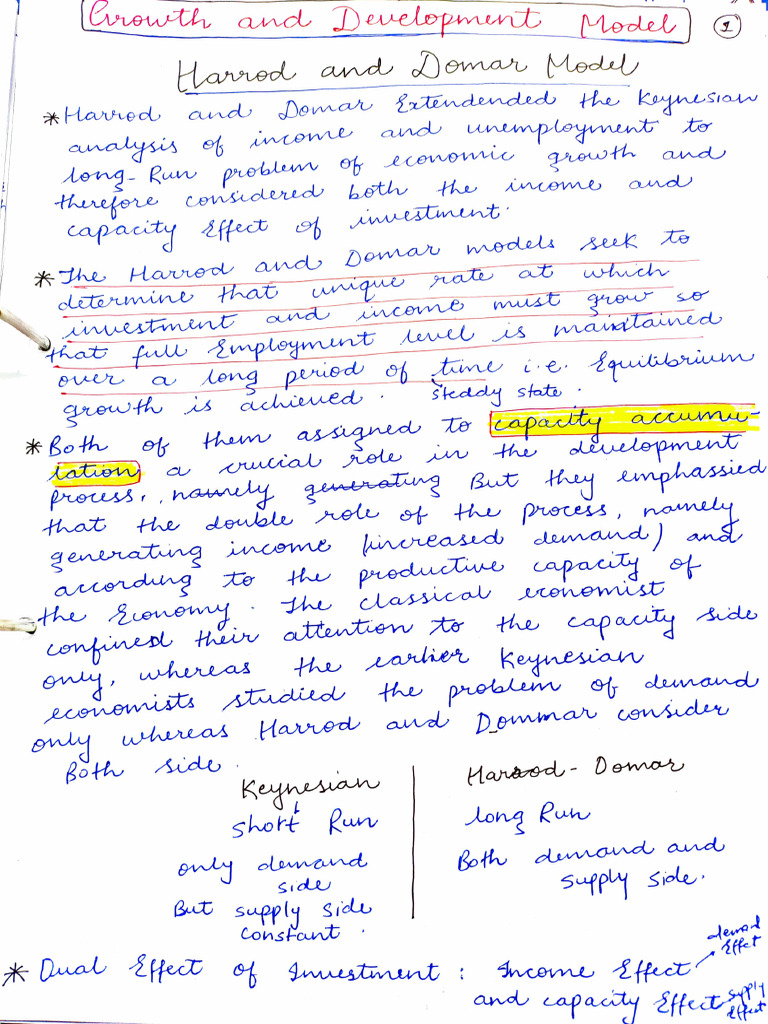 Growth and Development Model
1
Harrod and Domar Model
* Harrod and Domar Extendended the Keynesian
analysis of income and unemployment to
long-Run problem of economic growth and
therefore considered both the income and
capacity Effect of investment.
* The Harrod and Domar models seek to
determine that unique rate at which
investment and income must grow so
that full Employment level is maintained
over a long period of time i.e. Equilibrium
growth is achieved. Steddy state.
* Both of them assigned to capacity accumu-
lation a crucial role in the development
process, namely generating But they emphassied
that the double role of the process, namely
generating income (increased demand) and
according to the productive capacity of
the Economy. The classical economist
confined their attention to the capacity side
only, whereas the earlier Keynesian
economists studied the problem of demand
only whereas Harrod and Dommar consider
Both side.
Keynesian
short Run
only demand
side
But supply side
constant.
Harrod - Domar
long Run
Both demand and
supply side.
* Dual Effect of Investment : Income Effect
demad
Effect
and capacity Effect
supply
Effect